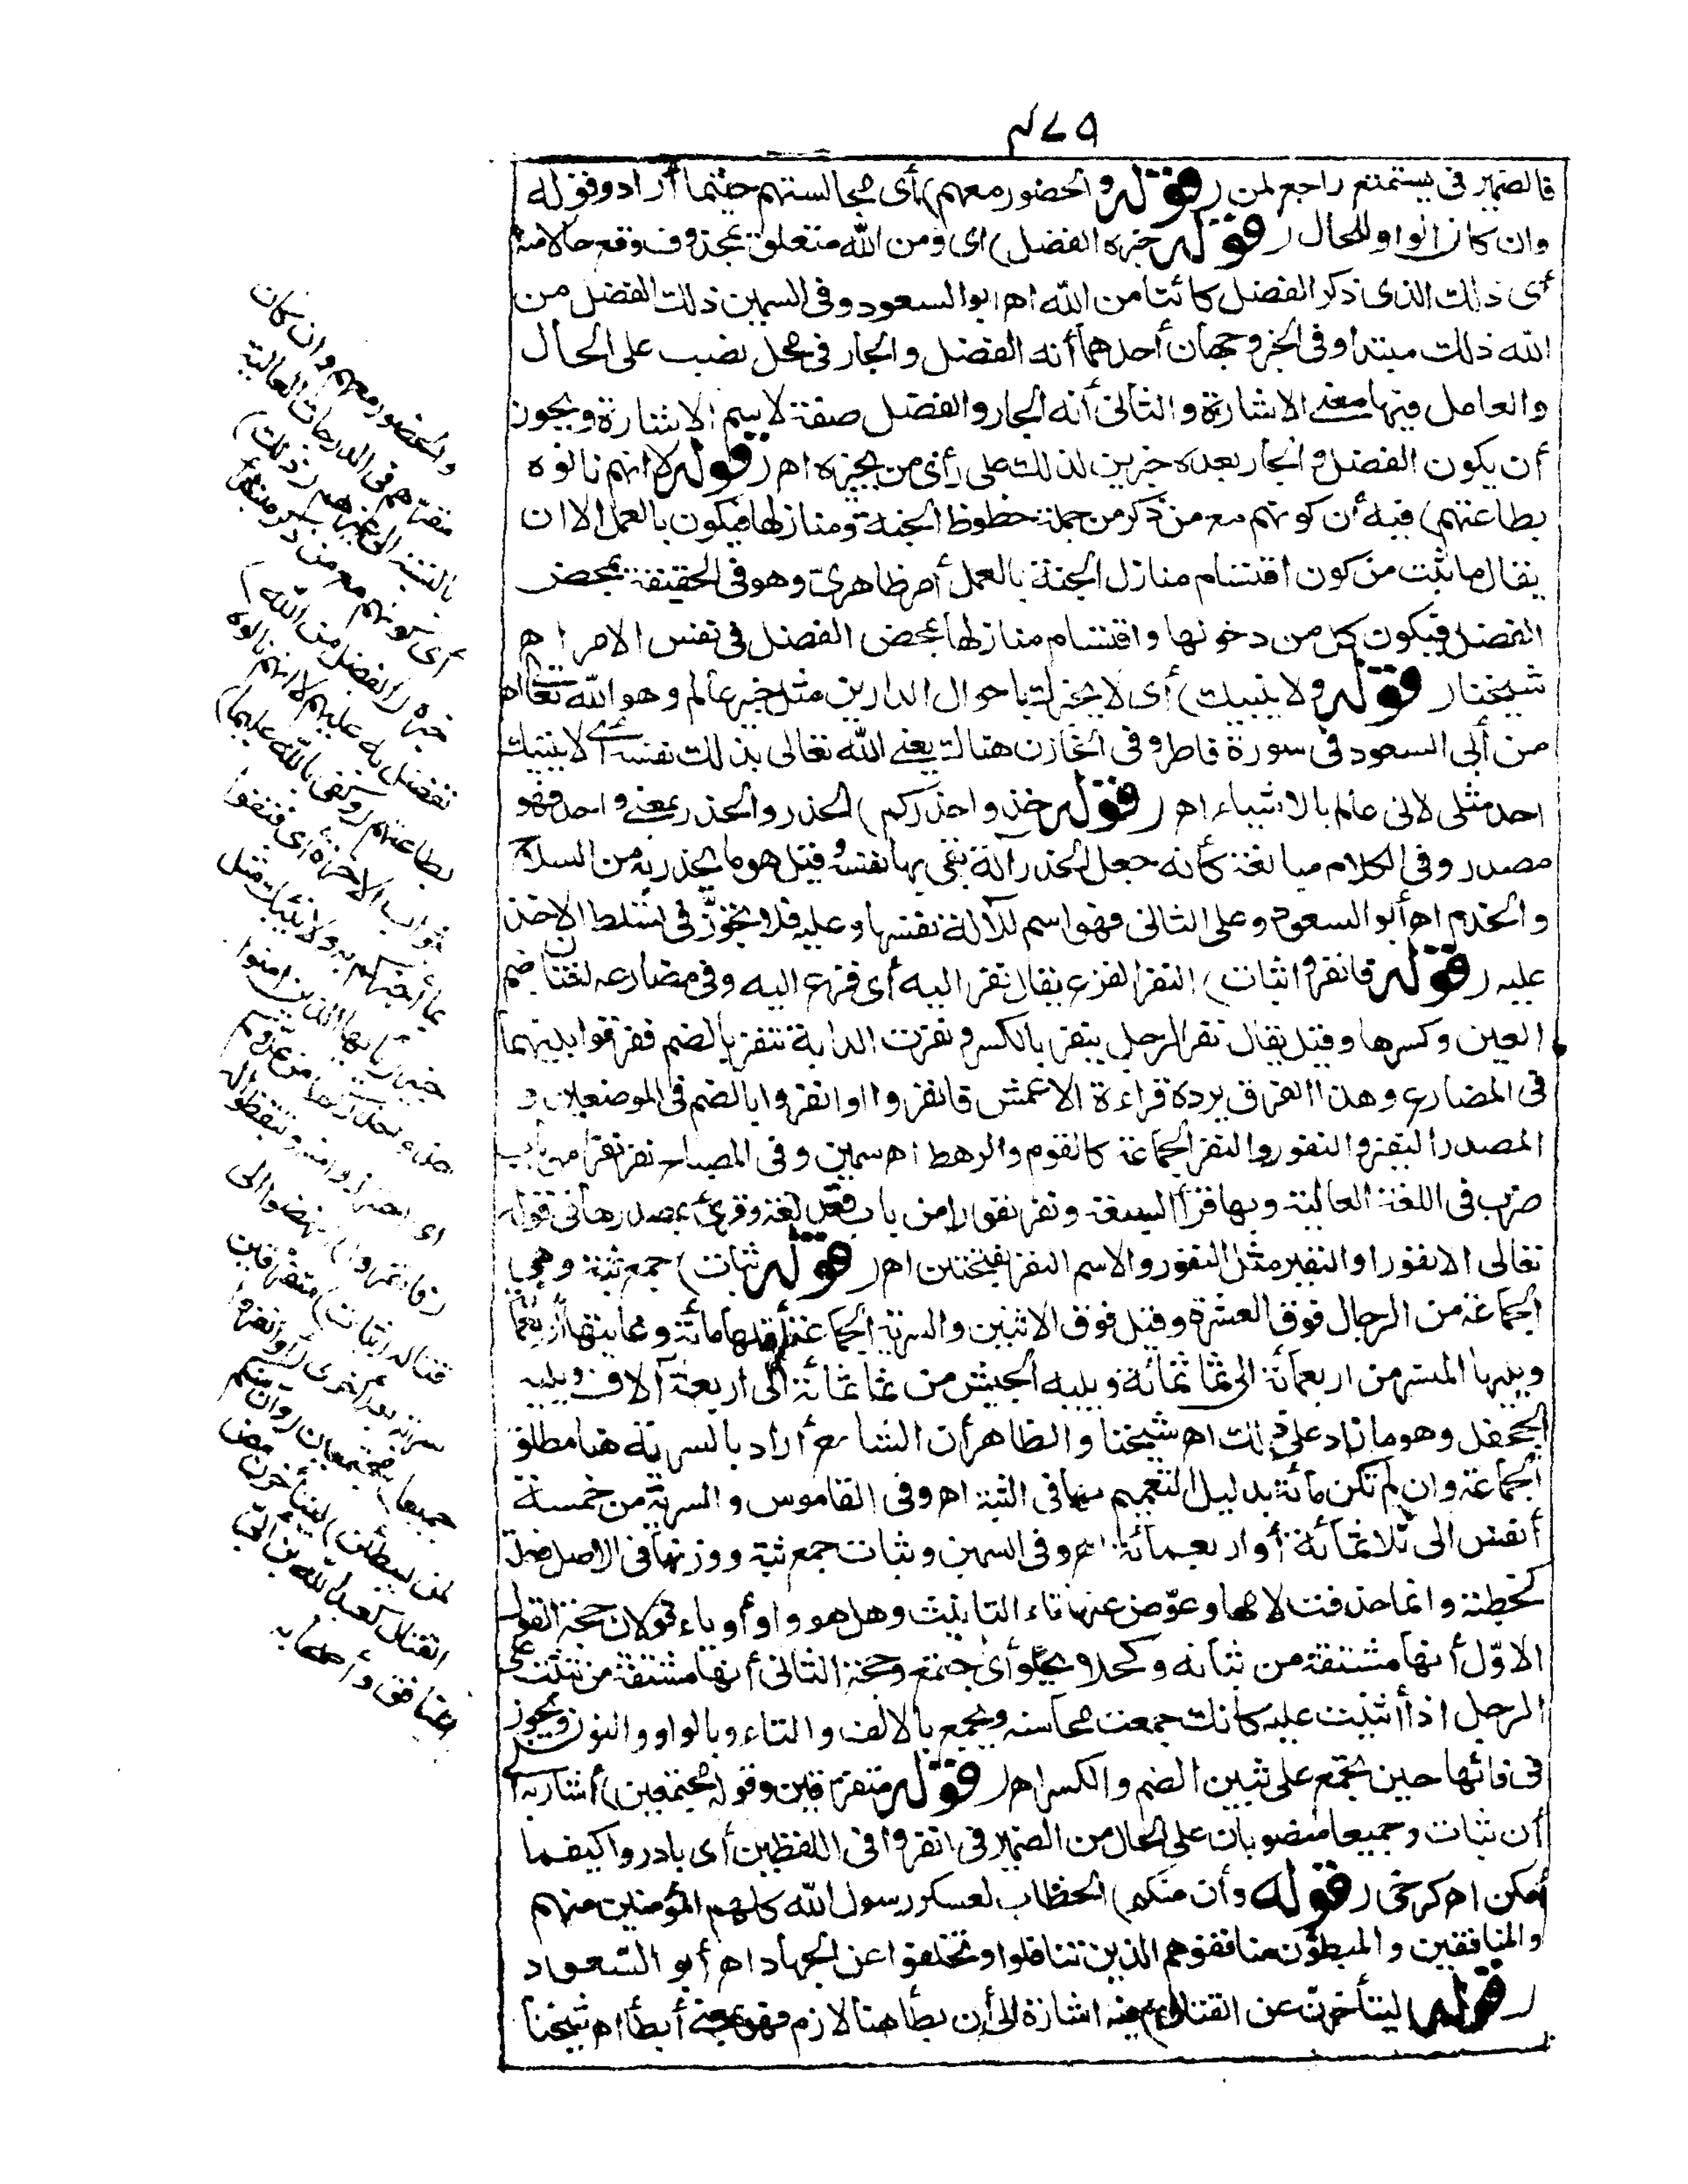 ٤٧٩
فالضمير فى يستمتع راجع لمن (قوله والحضور معهم) أى مجالستهم حيثما أرادوا وقوله
وان كان الواو للحال (قوله خبره الفضل) اى ومن الله متعلق بمحذوف وقع حالا منه
أى ذلك الذى ذكر الفضل كائنا من الله اه ابو السعود وفى السمين ذلك الفضل من
الله ذلك مبتدا وفى الخبر وجهان أحدهما أنه الفضل والجار فى محل نصب على الحال
والعامل فيها معنى الاشارة والثانى أنه الجار والفضل صفة لاسم الاشارة ويجوز
أن يكون الفضل والجار بعده خبرين لذلك على رأى من يجيزه اه (قوله لا انهم نالوه
بطاعتهم) فيه أن كونهم مع من ذكر من جملة حظوظ الجنة ومنازلها فيكون بالعمل الا ان
يقال ما يثبت من كون اقتسام منازل الجنة بالعمل أمر ظاهرى وهو فى الحقيقة بمحض
الفضل فيكون كل من دخولها واقتسام منازلها بمحض الفضل فى نفس الامر اه
شيخنا (قوله ولا ينبيك) أى لا يخبرك باحوال الدارين مثل خبير عالم وهو الله تعالى اه
من أبى السعود فى سورة فاطر وفى الخازن هناك يعنى الله تعالى بذلك نفسه أى لا ينبيك
احد مثلى لانى عالم بالاشياء اه (قوله خذوا حذركم) الحذر والحذر بمعنى واحد فهو
مصدر وفى الكلام مبالغة كأنه جعل الحذر آلة يقى بها نفسه وقيل هو ما يحذر به من السلاح
والحذم اه أبو السعود وعلى الثانى فهو اسم للآلة نفسها وعليه فلا تجوّز فى تسلط الاخذ
عليه (قوله فانفروا ثبات) النفر الفزع يقال نفر اليه أى فزع اليه وفى مضارعه لغتان ضم
العين وكسرها وقيل يقال نفر الرجل ينفر بالكسر ونفرت الدابة تنفر بالضم ففرقوا بينهما
فى المضارع وهذا الفرق يرده قراءة الاعمش فانفروا او انفروا بالضم فى الموضعين و
المصدر النفير والنفور والنفر الجماعة كالقوم والرهط اه سمين وفى المصباح نفر نفرا من باب
ضرب فى اللغة العالية وبها قرأ السبعة ونفر نفورا من باب قعد لغة وقرئ بمصدرها فى قوله
تعالى الا نفورا والنفير مثل النفور والاسم النفر بفتحتين اه (قوله ثبات) جمع ثبة وهى
الجماعة من الرجال فوق العشرة وقيل فوق الاثنين والسرية الجماعة أقلها مائة وغايتها أربعمائة
ويليها المنسر من اربعمائة الى ثمانمائة ويليه الجيش من ثمانمائة الى اربعة آلاف ويليه
الجحفل وهو ما زاد على ذلك اه شيخنا والظاهر أن الشارح أراد بالسرية هنا مطلق
الجماعة وان لم تكن مائة بدليل التعميم بها فى الثبة اه وفى القاموس والسرية من خمسة
أنفس الى ثلاثمائة أو اربعمائة اه وفى السمين وثبات جمع ثبة ووزنها فى الاصل فعلة
كحطمة وانما حذفت لامها وعوّض عنها تاء التانيث وهل هو واو أو ياء قولان حجة القول
الاوّل أنها مشتقة من ثبا يثبو كحلا يحلو أى جتمع وحجة الثانى أنها مشتقة من ثبيت على
الرجل اذا أثنيت عليه كانك جمعت محاسنه ويجمع بالالف والتاء وبالواو والنون ويجوز
فى فائها حين تجمع على ثبين الضم والكسر اه (قوله متفرقين وقوله مجتمعين) أشار به الى
أن ثبات وجميعا منصوبان على الحال من الضمير فى انفروا فى اللفظين أى بادروا كيفما
أمكن اه كرخى (قوله وأن منكم) الخطاب لعسكر رسول الله كلهم المؤمنين منهم
والمنافقين والمبطؤن منافقوهم الذين تثاقلوا وتخلفوا عن الجهاد اه أبو السعود
(قوله ليتأخرن عن القتال) فيه اشارة الى أن بطأ هنا لازم فهو بمعنى أبطأ اه شيخنا
والحضور معهم وان كان
مقرهم فى الدرجات العالية
بالنسبة الى غيرهم (ذلك)
أى كونهم مع من ذكر مبتدأ
خبره (الفضل من الله)
تفضل به عليهم لا انهم نالوه
بطاعتهم (وكفى بالله عليما)
بثواب الآخرة أى فثقوا
بما أخبركم به ولا ينبئك مثل
خبير (يا أيها الذين آمنوا
خذوا حذركم) من عدوكم
أى احترزوا منه وتيقظوا له
(فانفروا) انهضوا الى
قتاله (ثبات) متفرقين
سرية بعد أخرى (أو انفروا
جميعا) مجتمعين (وان منكم
لمن ليبطئن) ليتأخرن عن
القتال كعبد الله بن أبىّ
المنافق وأصحابه